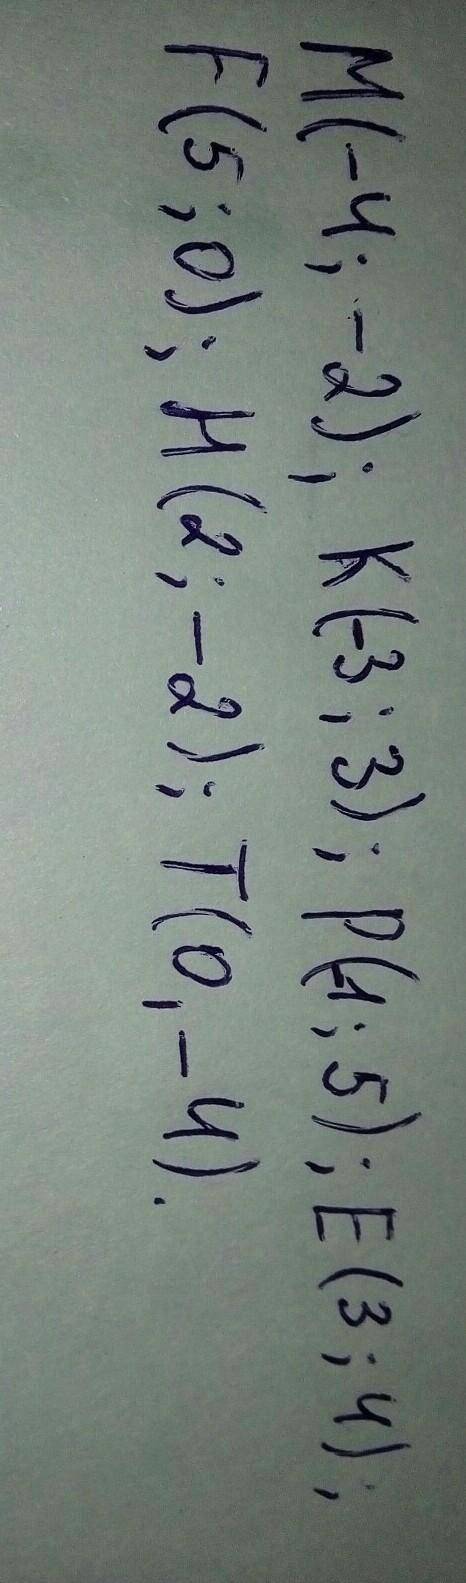 M(-4; -2); K(-3; 3); P(-1; 5); E(3; 4);
F(5; 0); H(2; -2); T(0, -4).